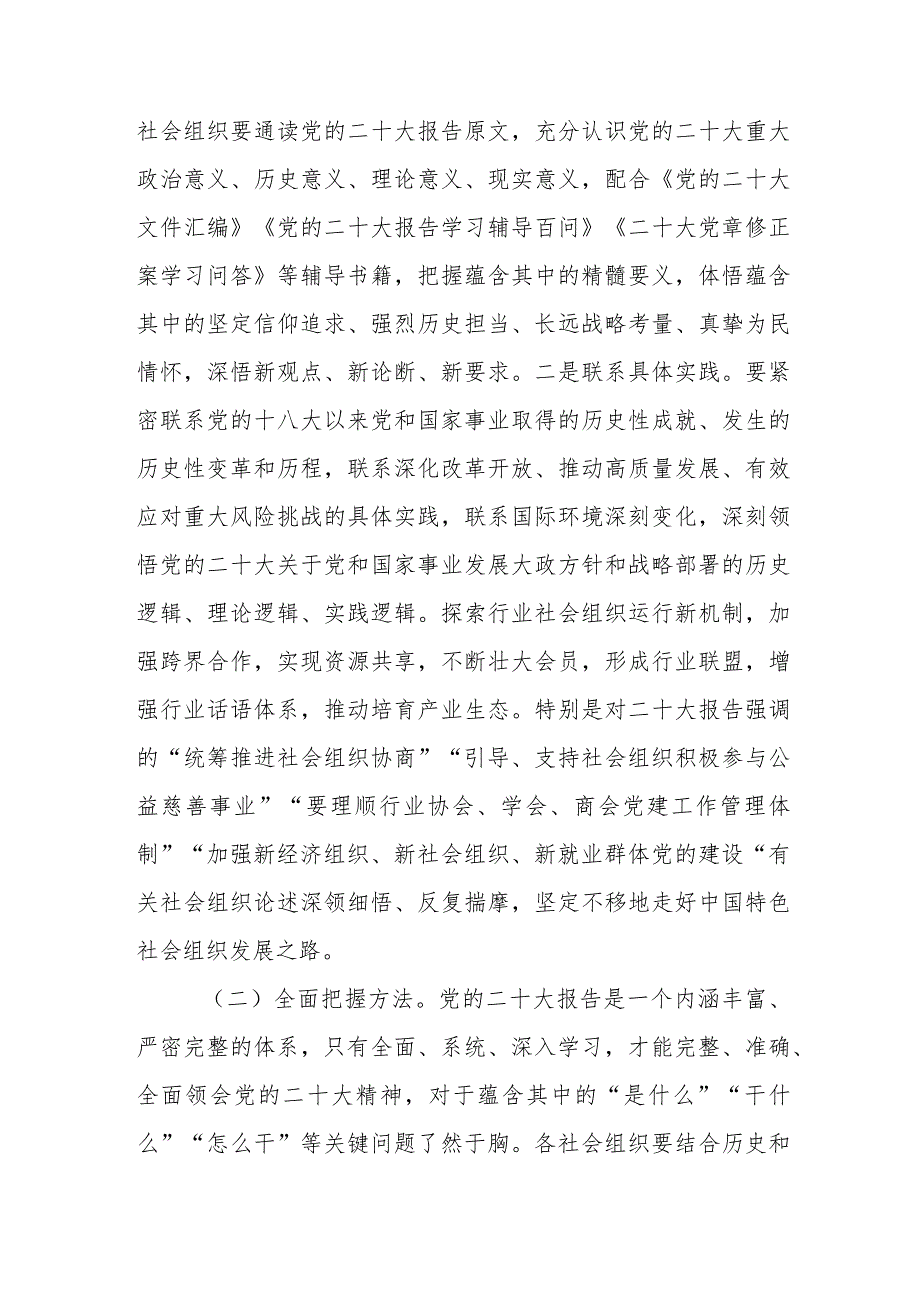 社会组织要通读党的二十大报告原文，充分认识党的二十大重大
政治意义、历史意义、理论意义、现实意义，配合《党的二十大
文件汇编》《党的二十大报告学习辅导百问》《二十大党章修正
案学习问答》等辅导书籍，把握蕴含其中的精髓要义，体悟蕴含
其中的坚定信仰追求、强烈历史担当、长远战略考量、真挚为民
情怀，深悟新观点、新论断、新要求。二是联系具体实践。要紧
密联系党的十八大以来党和国家事业取得的历史性成就、发生的
历史性变革和历程，联系深化改革开放、推动高质量发展、有效
应对重大风险挑战的具体实践，联系国际环境深刻变化，深刻领
悟党的二十大关于党和国家事业发展大政方针和战略部署的历史
逻辑、理论逻辑、实践逻辑。探索行业社会组织运行新机制，加
强跨界合作，实现资源共享，不断壮大会员，形成行业联盟，增
强行业话语体系，推动培育产业生态。特别是对二十大报告强调
的“统筹推进社会组织协商”“引导、支持社会组织积极参与公
益慈善事业”“要理顺行业协会、学会、商会党建工作管理体
制”“加强新经济组织、新社会组织、新就业群体党的建设“有
关社会组织论述深领细悟、反复揣摩，坚定不移地走好中国特色
社会组织发展之路。
（二）全面把握方法。党的二十大报告是一个内涵丰富、
严密完整的体系，只有全面、系统、深入学习，才能完整、准确、
全面领会党的二十大精神，对于蕴含其中的“是什么”“干什
么”“怎么干”等关键问题了然于胸。各社会组织要结合历史和